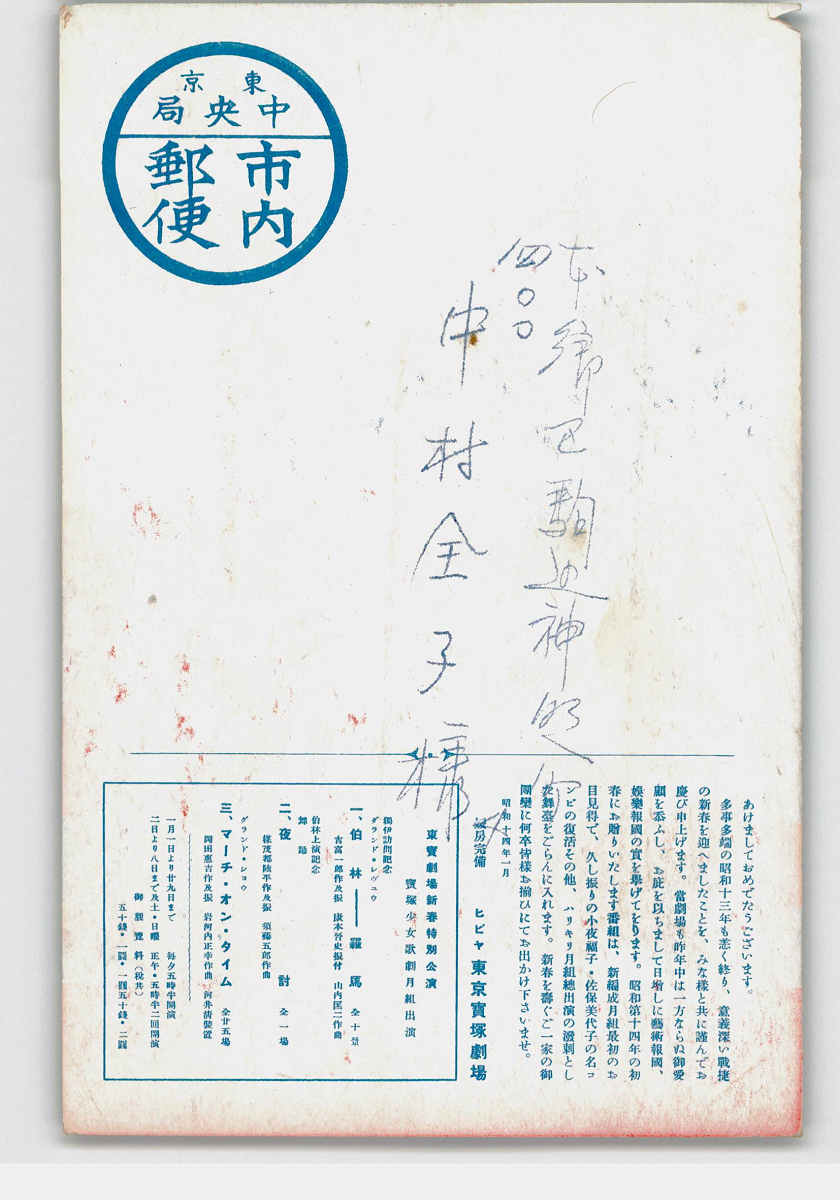 東京
中央局
市内
郵便
本郷区駒込神明町
四〇〇
中村全子様
あけましておめでたうございます。
多事多端の昭和十三年も恙く終り、意義深い戰捷
の新春を迎へましたことを、みな樣と共に謹んでお
慶び申上げます。當劇場も昨年中は一方ならぬ御愛
顧を忝ふし、お庇を以ちまして日増しに藝術報國、
娯樂報國の實を擧げてをります。昭和第十四年の初
春にお贈りいたします番組は、新編成月組最初のお
目見得で、久し振りの小夜福子・佐保美代子の名コ
ンビの復活その他、ハリキリ月組總出演の潑剌とし
た舞臺をごらんに入れます。新春を壽ぐご一家の御
團欒に何卒皆樣お揃ひにてお出かけ下さいませ。
昭和十四年一月
煖房完備 ヒビヤ 東京寶塚劇場
東寶劇場新春特別公演
寶塚少女歌劇月組出演
獨伊訪問記念
グランド・レヴユウ
一、伯林——羅馬 全十景
宇津秀一郎作及振 康本晋史振付 山内匡二作曲
伯林上演記念
舞踊
二、夜討 全一場
楳茂都陸平作及振 須藤五郎作曲
グランド・シヨウ
三、マーチ・オン・タイム 全廿五場
岡田惠吉作及振 岩河内正幸作曲 河井清裝置
一月一日より廿九日まで 毎夕五時半開演
二日より八日まで及土・日曜 正午・五時半二回開演
御觀覽料(税共)
五十錢・一圓・一圓五十錢・二圓